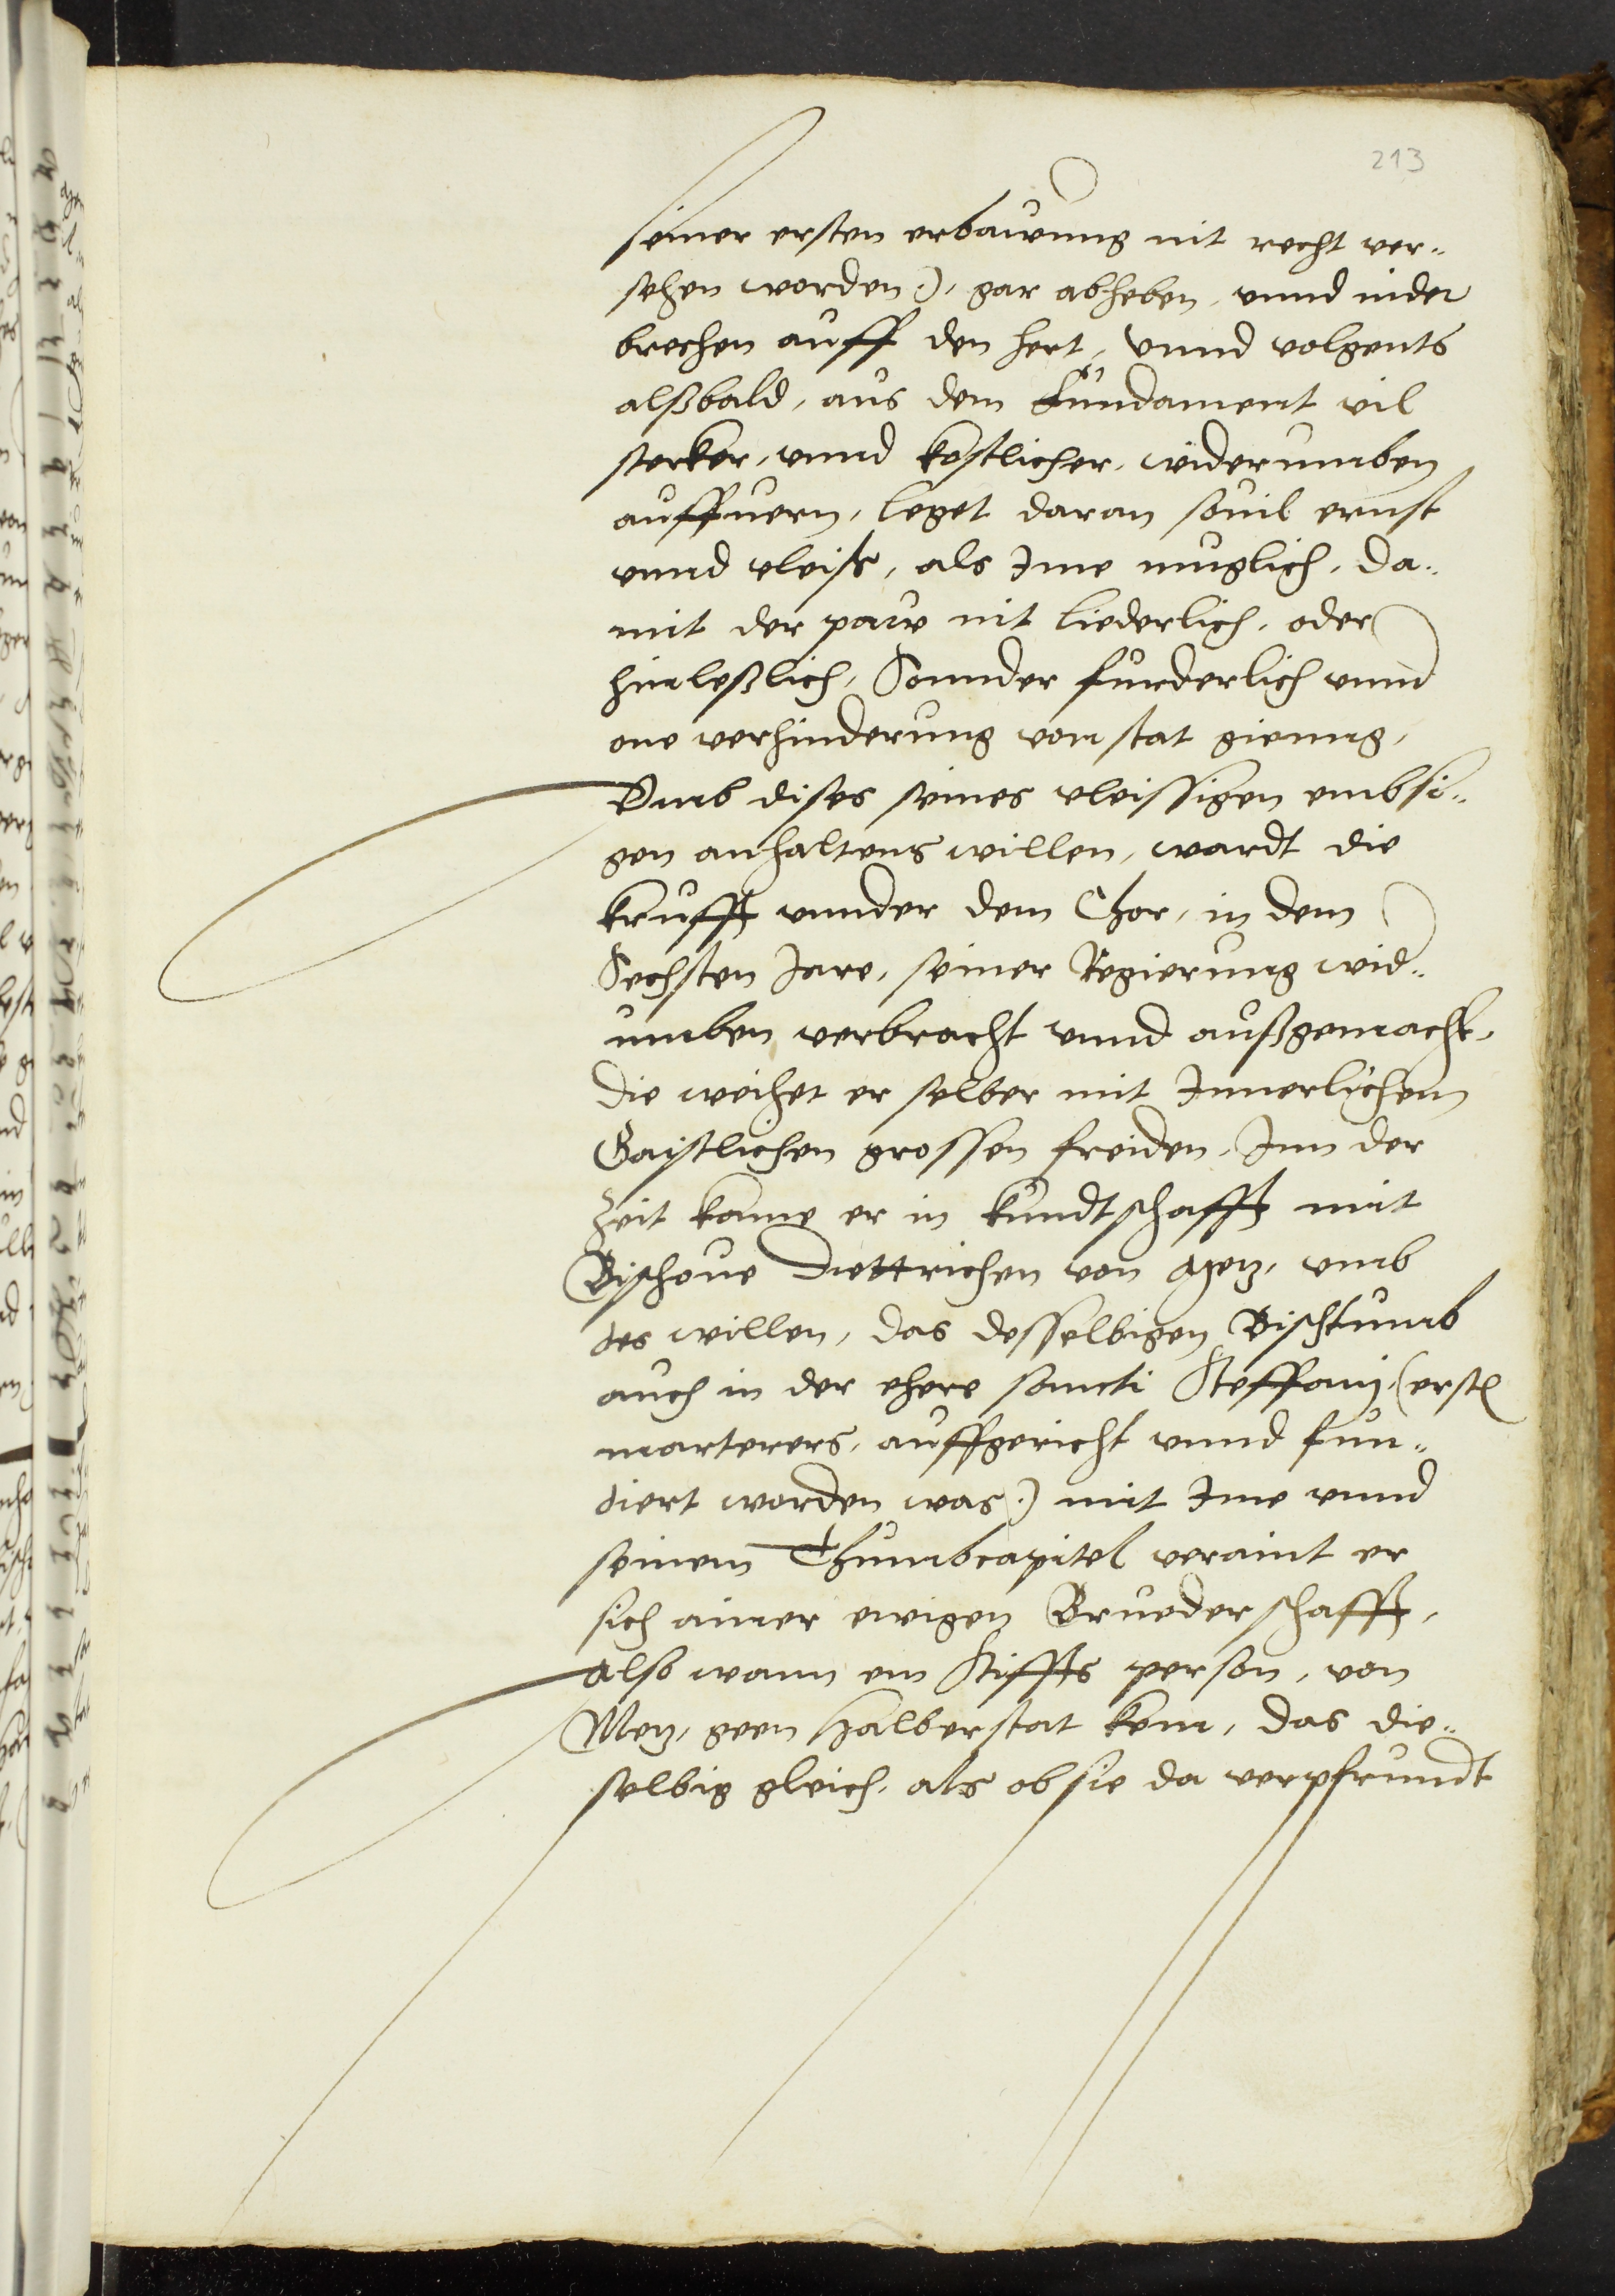 213
seiner ersten erbawung nit recht ver-
sehen worden :), gar abheben, vnnd nider
brechen auff den hert, vnnd volgents
alßbald, aus dem fundament vil
sterker, vnnd kostlicher, widerumben
auffuern, leget daran souil ernst
vnnd vleiß, als Ime muglich, da-
mit der paw nit liederlich, oder
hinleßlich, Sonnder furderlich vnnd
one verhinderung von stat gienng,
Vmb dises seines vleissigen embsi-
gen anhaltens willen, wardt die
krufft vnnder dem Chor, in dem
Sechsten Jare, seiner Regierung wid-
umben verbracht vnnd außgemacht,
die weihet er selber mit Innerlichem
Gaistlichen grossen freiden, Inn der
Zeit kame er in kundtschafft mit
Bischoue Diettrichen von Metz, vmb
des willen, das desselbigen Bisthumb
auch in der ehere sancti Steffanj, (erst
marterers, auffgericht vnnd fun-
diert worden was :) mit Ime vnnd
seinem Thumbcapitel veraint er
sich ainer ewigen Bruederschafft,
Also wann ein Stiffts person, von
Metz, geen Halberstat kem, das die-
selbig gleich, als ob sie da verpfrundt